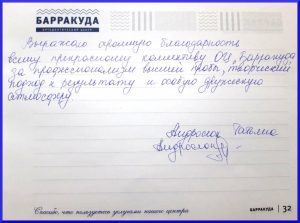 БАРРАКУДА
ОРТОДОНТИЧЕСКИЙ ЦЕНТР
Выражаю огромную благодарность
всему прекрасному коллективу ОЦ "Барракуда
за профессионализм высшей пробы, творческий
подход к результату и особую дружескую
атмосферу
Татьяна
Спасибо, что пользуетесь услугами нашего центра
БАРРАКУДА 32